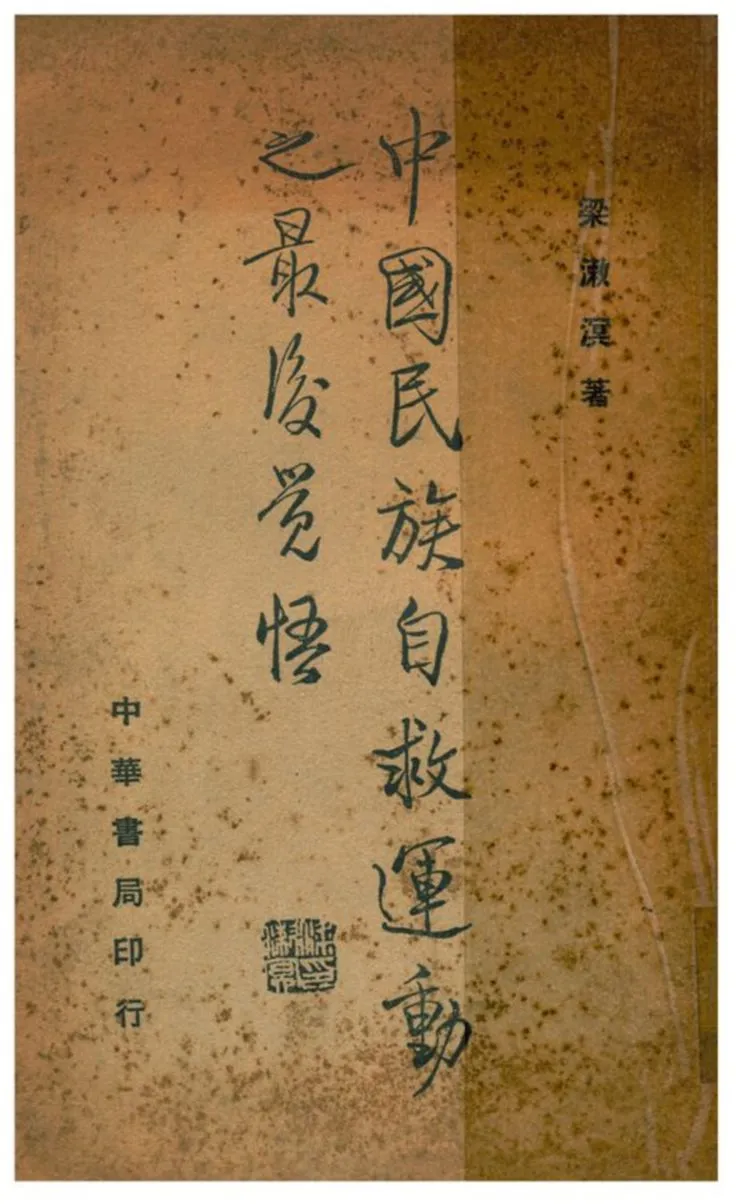 梁漱溟著
中國民族自救運動
之最後覚悟
中華書局印行